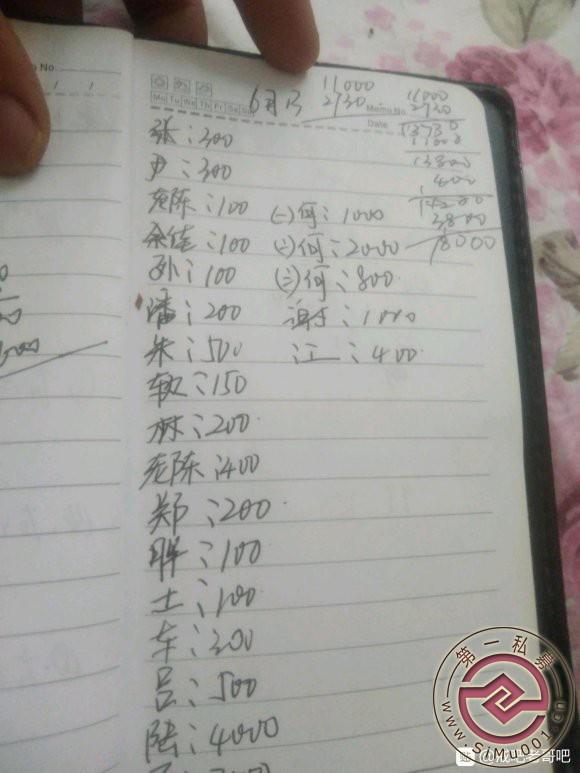 No.
Mo Tu We Th Fr Sa Su
Memo No.
Date
6月
11000
2730
11000
2730
13730
11000
13800
400
14200
3800
18000
张:300
尹:300
老陈:100 (一)何:1000
余佳:100 (二)何:2000
孙:100 (三)何:800
潘:200 谢:1000
朱:500 江:400
:150
林:200
老陈:400
郑:200
胖:100
土:100
车:300
吕:500
陆:4000
第一私募
www.SiMu001